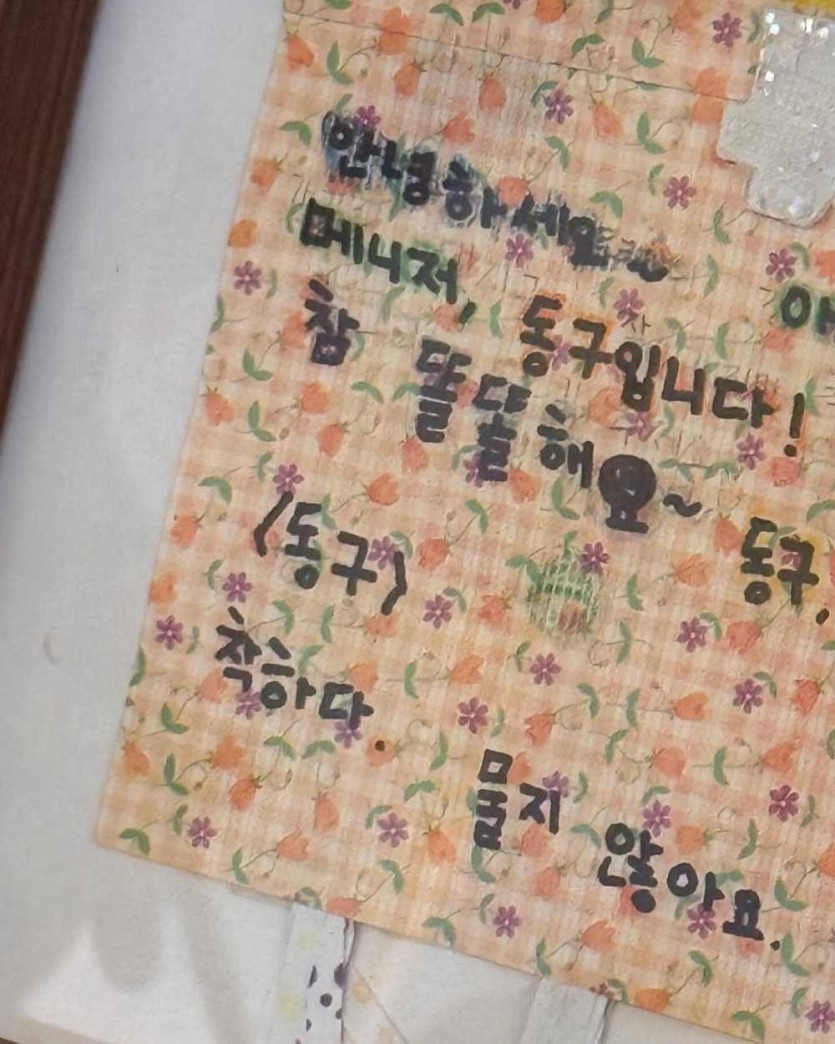 안녕하세요~
메니저, 동구입니다!
참 똘똘해요~
<동구>
동구.
착하다.
물지 않아요.